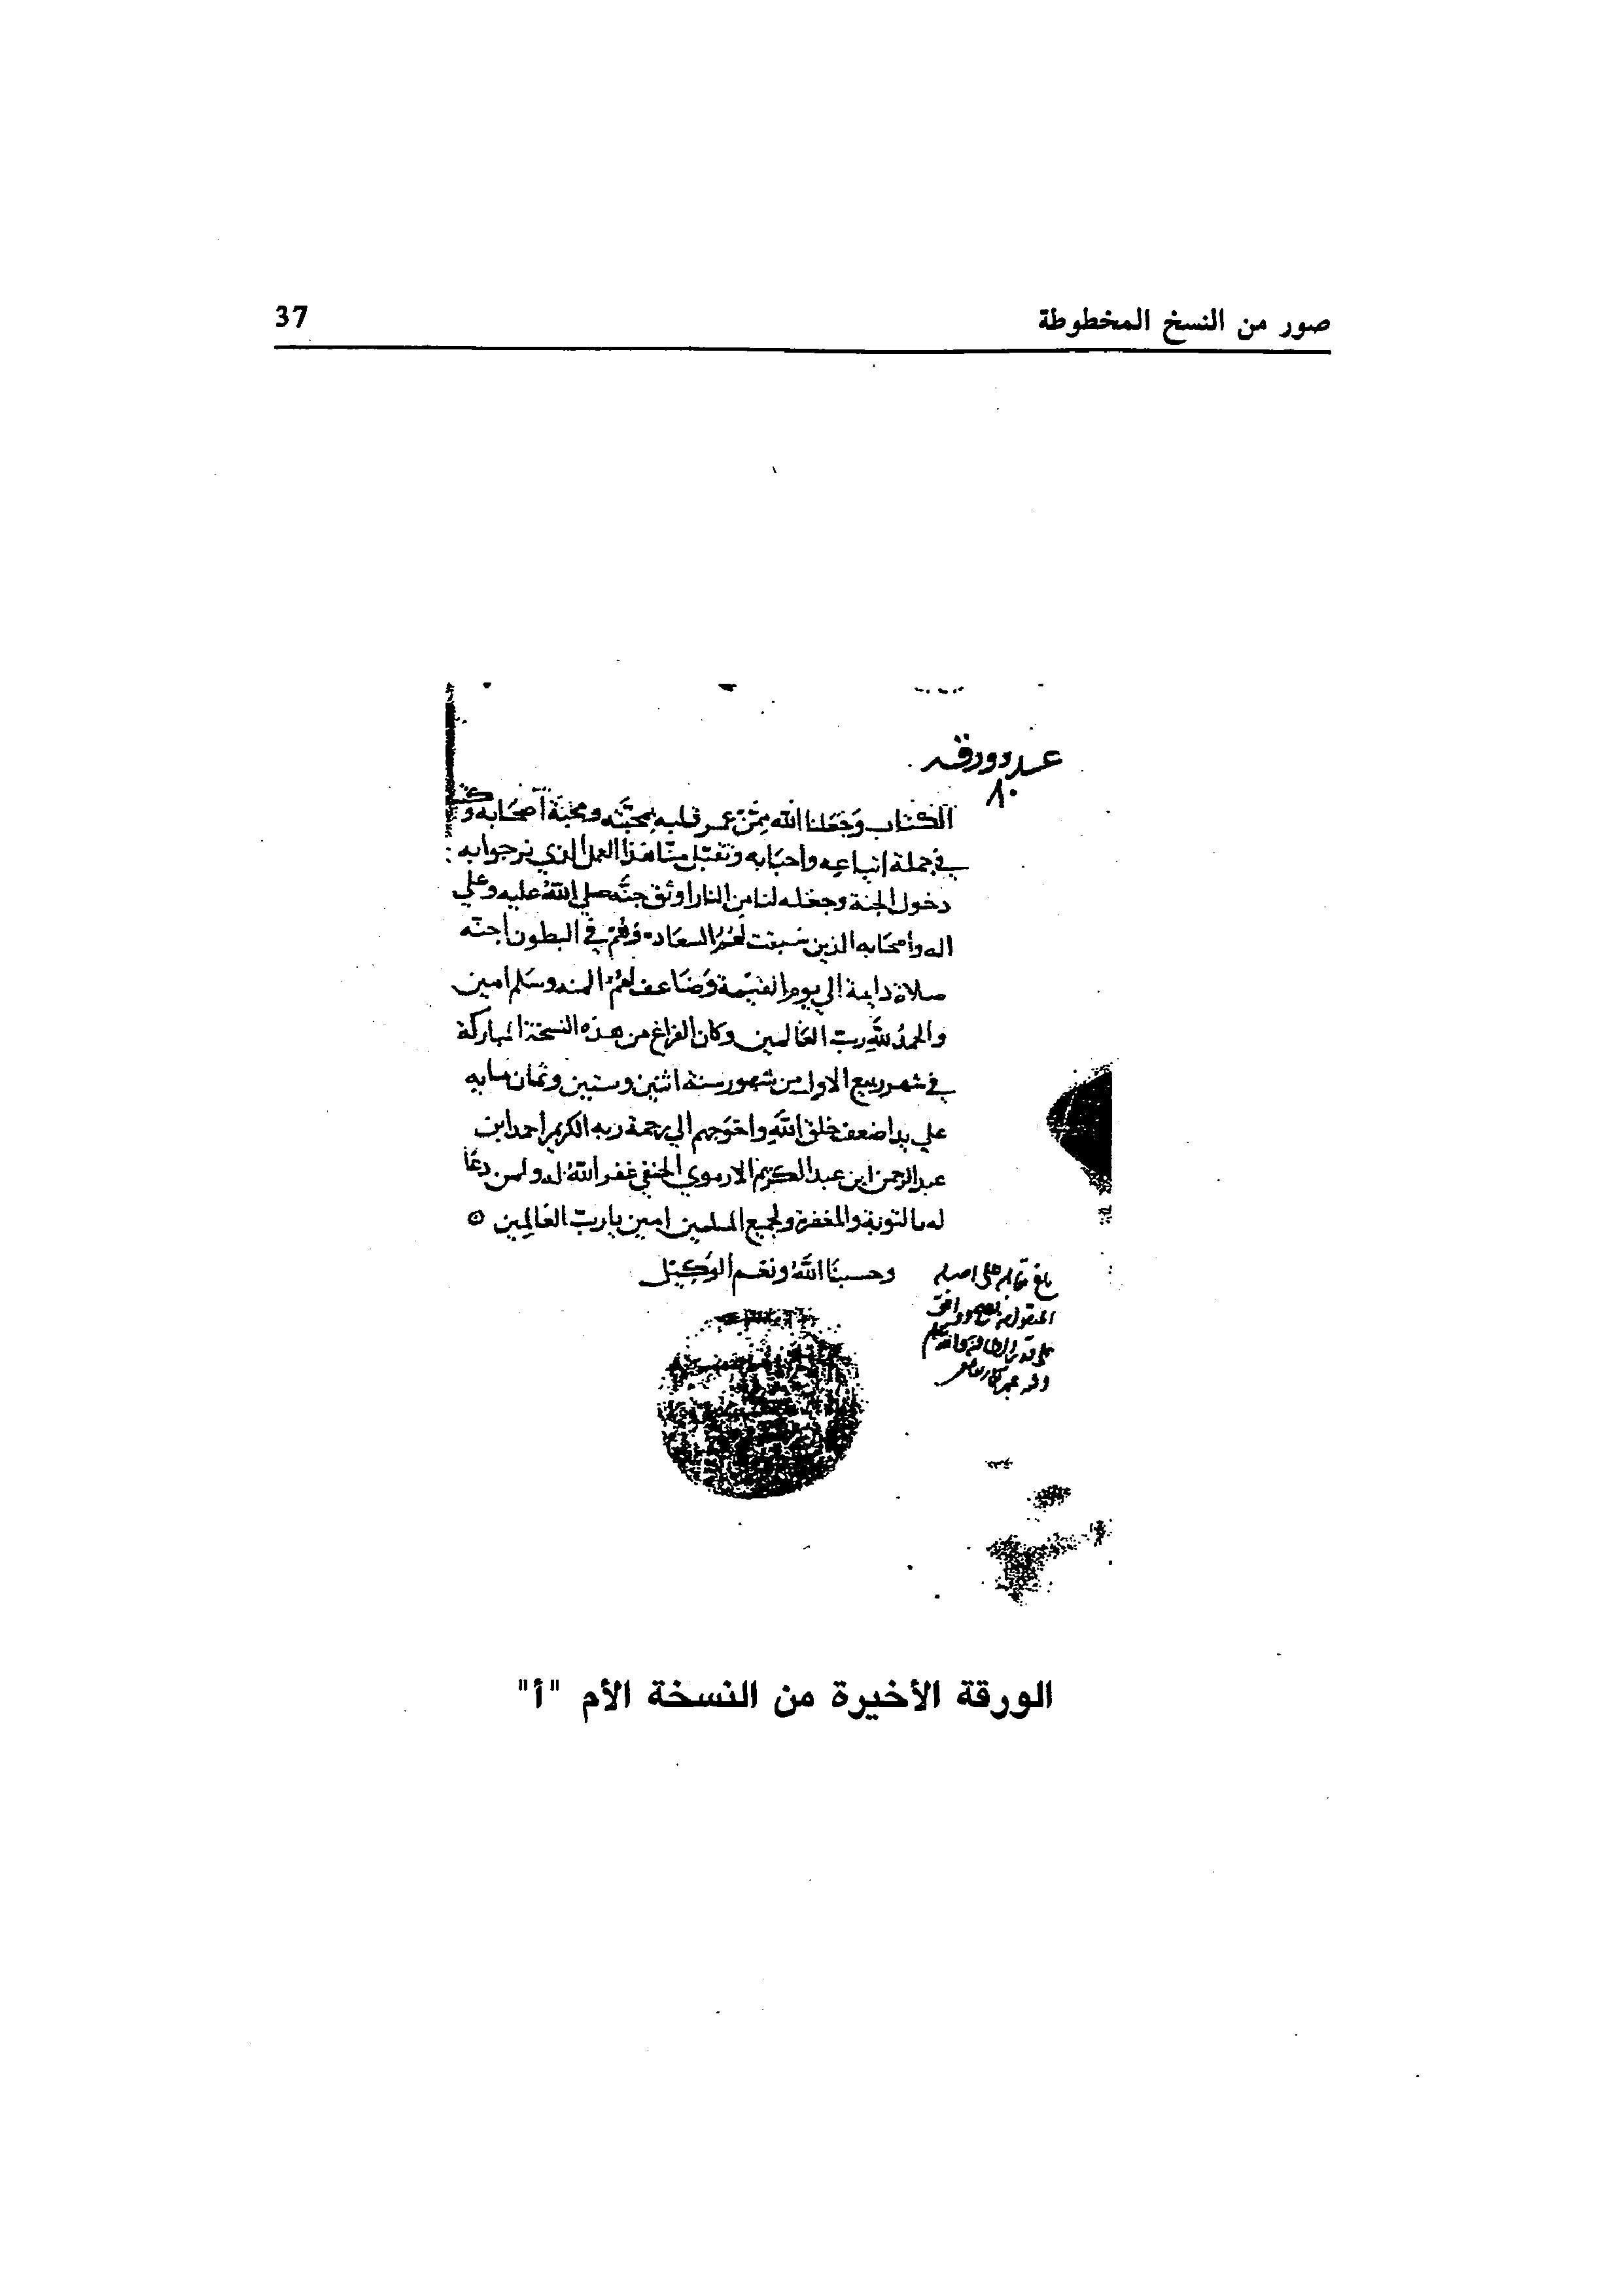 صور من النسخ المخطوطة 37
عدد ورقه
٨٠
الكتاب وجعلنا الله ممن عمر قلبه بمحبته ومحبة اصحابه وكتبنا
في جملة اتباعه واحبابه وتقبل منا هذا العمل الذي نرجوا به
دخول الجنة وجعله لنا من النار اوثق جنّه صلي الله عليه وعلي
اله واصحابه الذين سبقت لهم السعاده وهم في البطون اجنه
صلاة دايمة الي يوم القيمة وضاعف لهم المنه وسلم امين
والحمد لله رب العالمين وكان الفراغ من هذه النسخة المباركة
في شهر ربيع الاول من شهور سنة اثنين وستين وثمان مايه
علي يد اضعف خلق الله واحوجهم الي رحمة ربه الكريم احمد ابن
عبد الرحمن ابن عبد الكريم الارموي الحنفي غفر الله له ولمن دعا
له بالتوبة والمغفرة ولجميع المسلمين امين يا رب العالمين ه
وحسبنا الله ونعم الوكيل
بلغ مقابله على اصله
المنقول منه فصح ووافق
الورقة الأخيرة من النسخة الأم "أ"